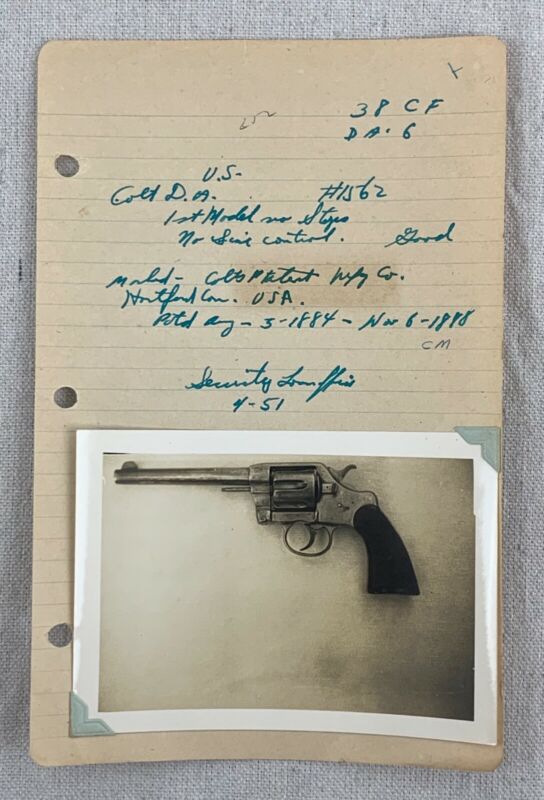 X
38 CF
DA. 6
U.S-
Colt D.A. #1562
1st Model no Stops
No Sine control. Good
Marked - Colts Patent Mfg Co.
Hartford Con. USA.
Patd Aug - 5-1884 - Nov 6-1888
CM
Security
4-51